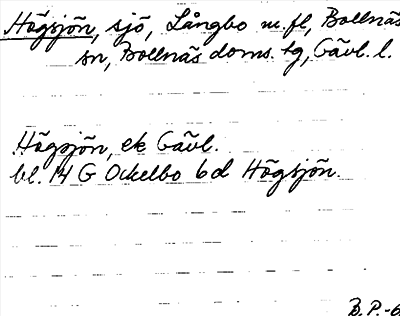 Högsjön, sjö, Långbo m.fl, Bollnäs
sn, Bollnäs doms. tg, Gävl. l.
Högsjön, ek Gävl.
bl. 14 G Ockelbo bd Högsjön.
B.P.-6